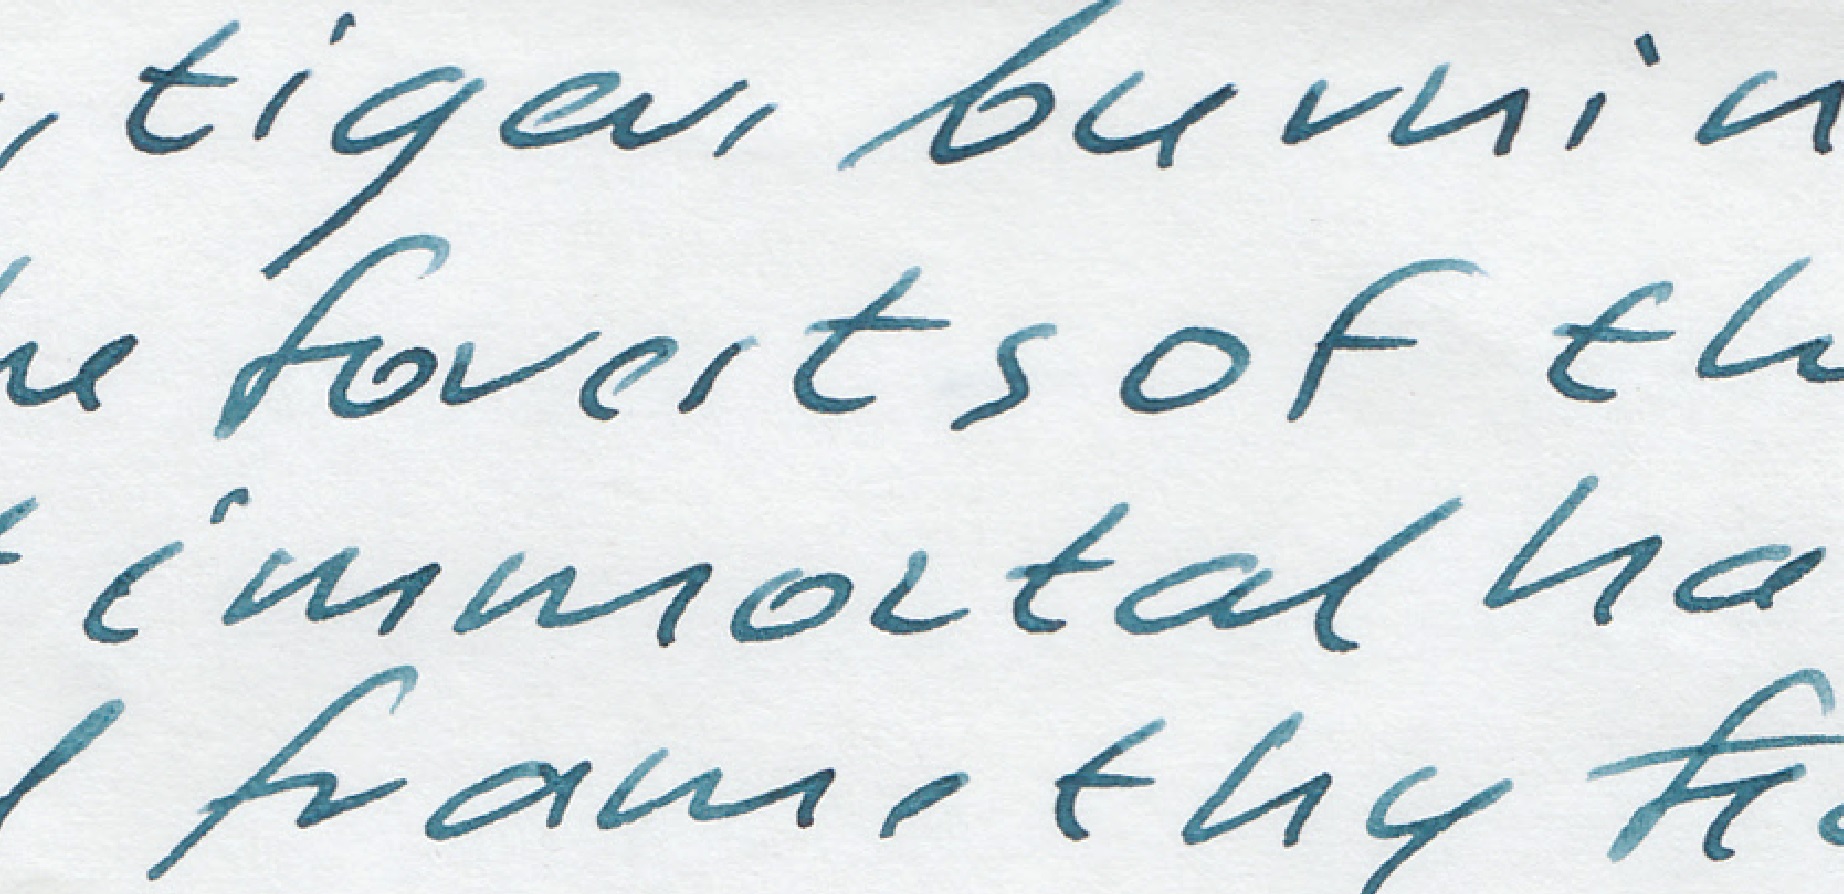 , tiger, burnin
he forests of th
t immortal ha
l frame thy fe